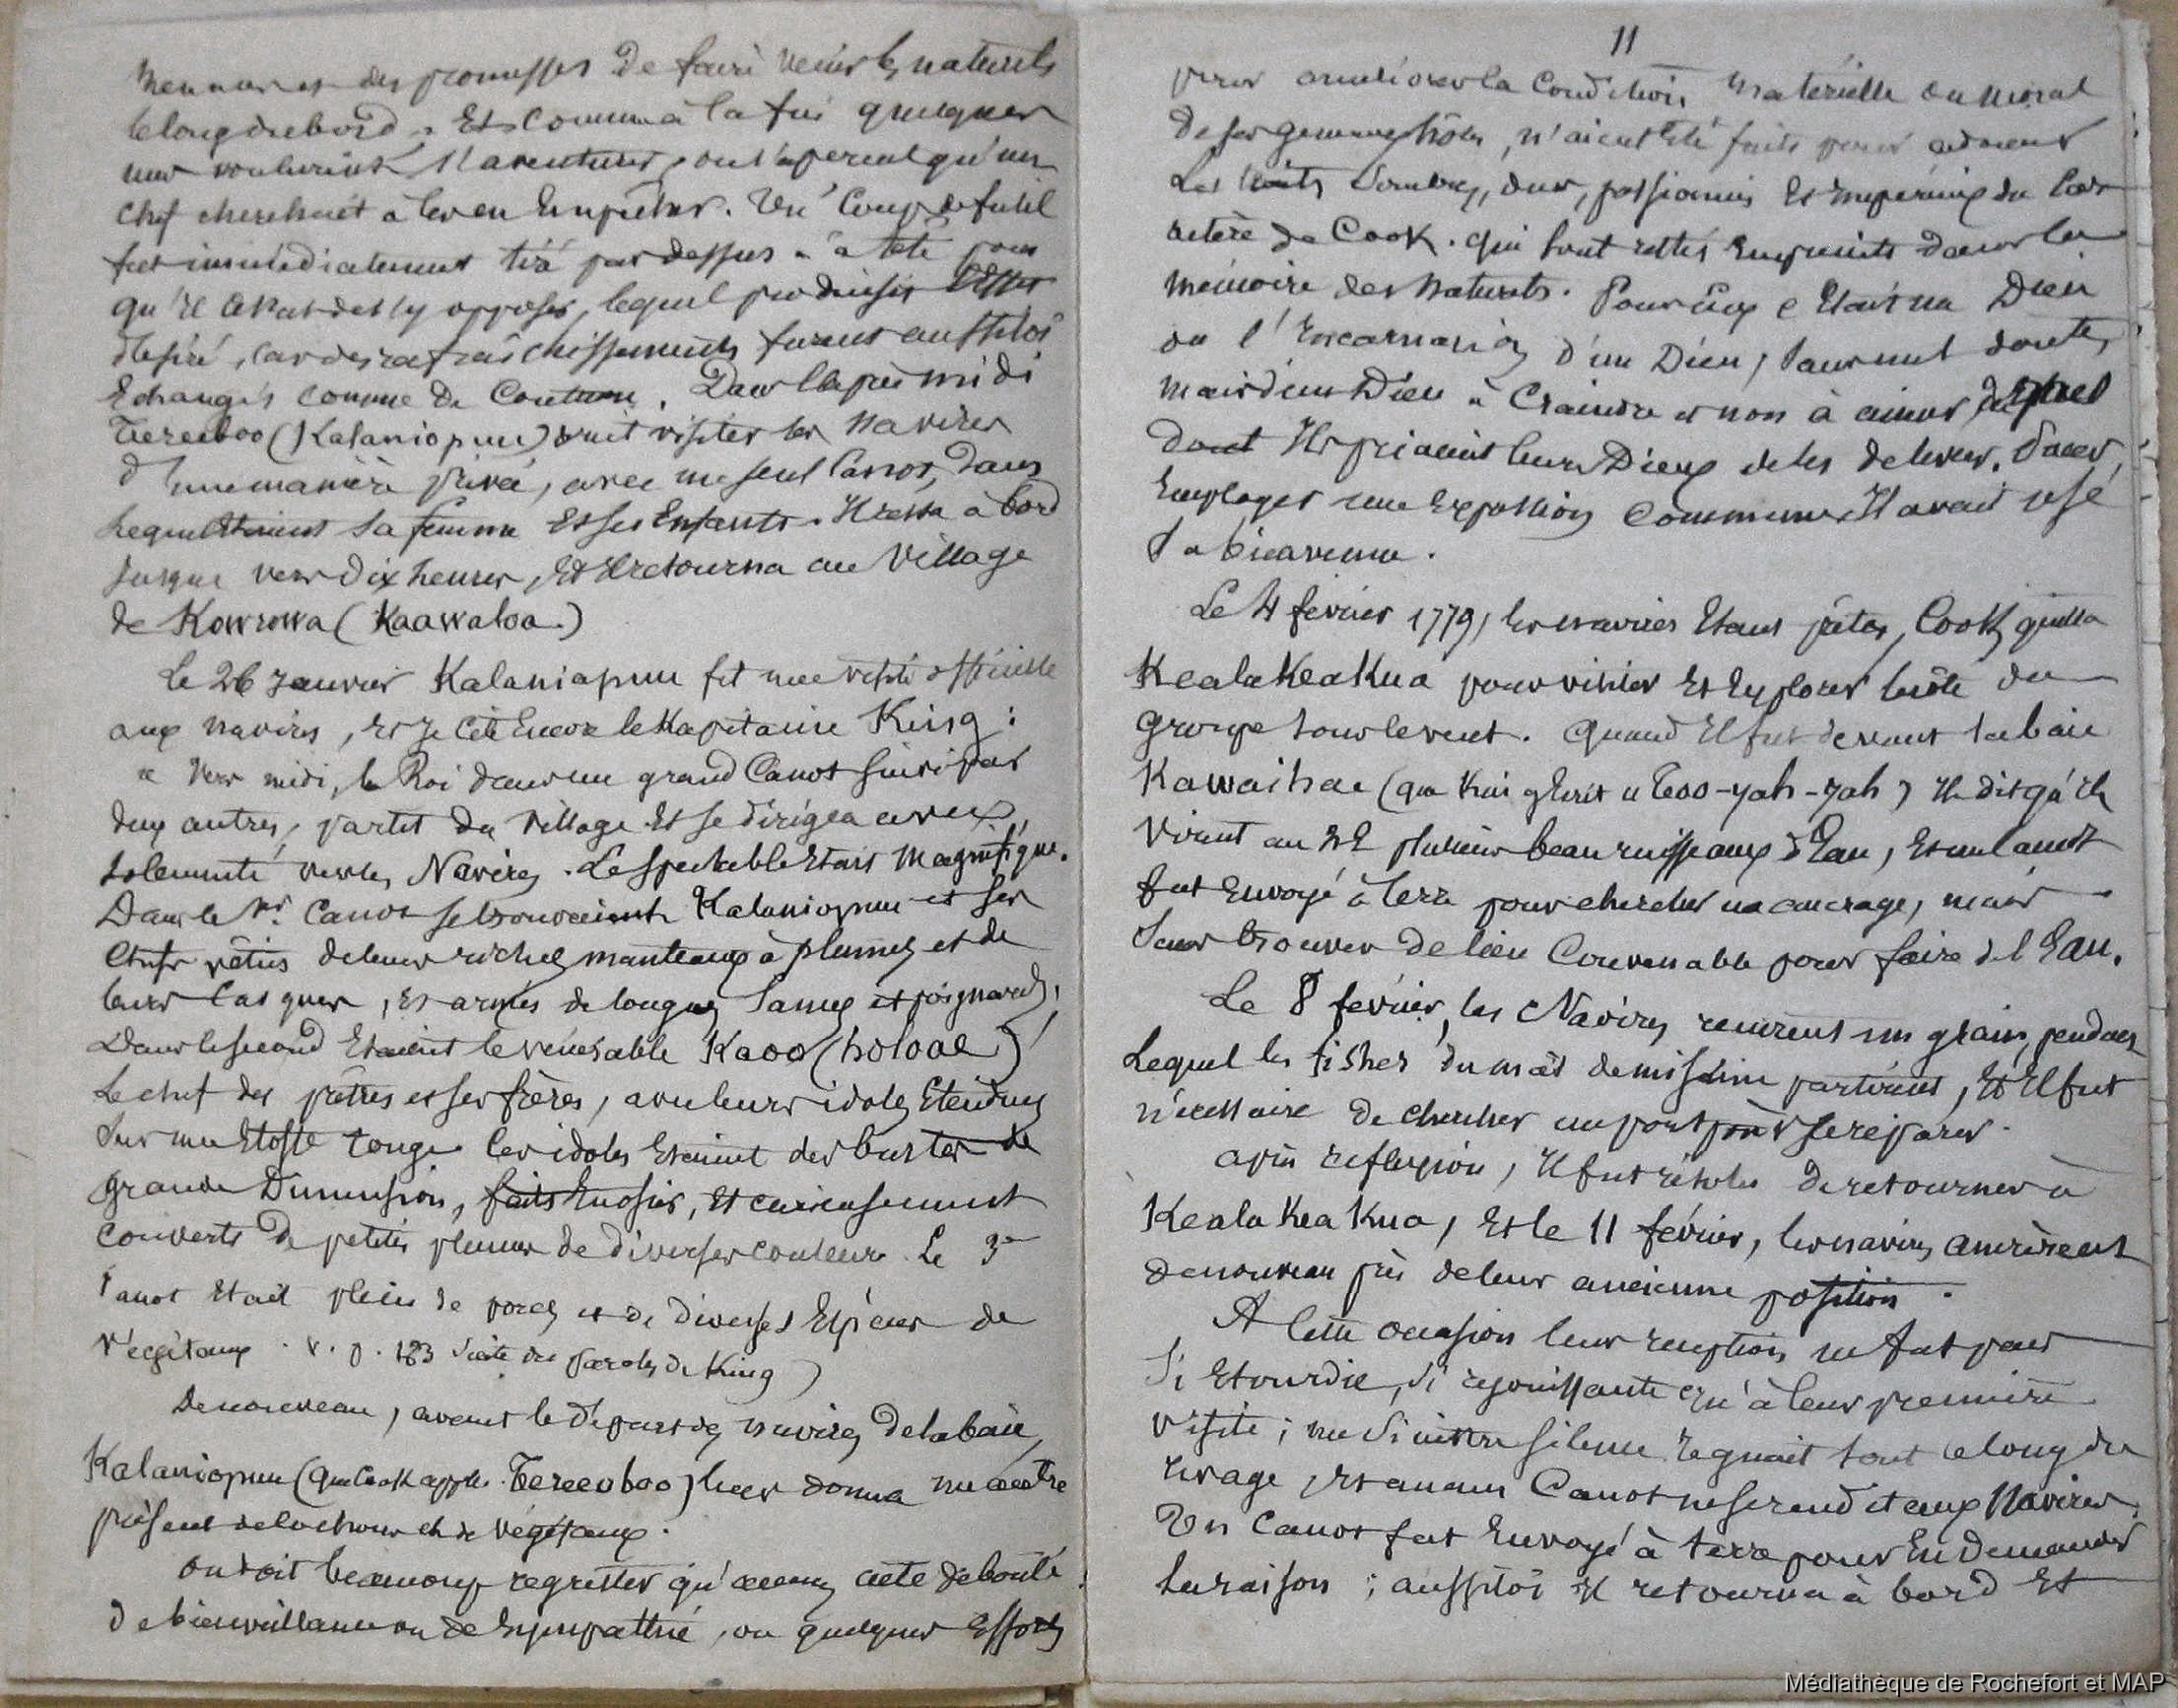 menaces et des promesses de faire venir les naturels
le long du bord. Et comme à la fin quelques
uns voulurent s'aventurer, on s'aperçut qu'un
chef cherchait à les en empêcher. Un coup de fusil
fut immédiatement tiré par dessus sa tête pour
qu'il de s'y opposer, lequel produisit l'effet
désiré, car des rafraîchissements furent aussitôt
Echangés comme de Coutume. Dans l'après midi
Tereeboo (Kalaniopuu) vint visiter les Navires
d'une manière privée, avec un seul Canot, dans
Lequel Etaient sa femme Et ses Enfants. Il resta à bord
Jusque vers dix heures, Et Il retourna au Village
de Kowrowa (Kaawaloa.)
Le 26 Janvier Kalaniopuu fit une visite officielle
aux navires, Et Je Cite Encore le Kapitaine King :
« Vers midi, le Roi dans un grand Canot suivi par
deux autres, partit du Village Et se dirigea avec
solennité vers les Navires. Le spectable Etait Magnifique.
Dans le 1er. Canot se trouvaient Kalaniopuu et ses
Chefs vêtus de leurs riches manteaux à plumes et de
leurs Casques, Et armés de longues lances et poignards ;
Dans le second Etaient le vénérable Kaoo (holoae)
Le chef des prêtres et ses frères, avec leurs idoles Etendues
sur une Etoffe rouge. Ces idoles Etaient des bustes de
grande Dimension, faits En osier, Et curieusement
Couverts de petites plumes de diverses couleurs. Le 3e
Canot Etait plein de porcs et de diverses Espèces de
Végétaux. v. p. 183 suite des paroles de King)
De nouveau, avant le départ des navires de la baie,
Kalaniopuu (que Cook appelle Tereeoboo) leur donna un autre
présent de cochons et de végétaux.
On doit beaucoup regretter qu'aucun acte de bonté
de bienveillance ou de Sympathie, ou quelques Efforts
11
pour améliorer la Condition Matérielle ou Moral
de ses généreux hôtes, n'aient été faits pour adoucir
Les traits sombres, durs, passionnés Et impérieux du Car
actère de Cook. qui sont restés Empreints dans la
mémoire des Naturels. Pour Eux c'Etait un Dieu
ou l'Incarnation d'un Dieu, sans nul doute,
mais d'un Dieu à Craindre et non à aimer,
dont Ils priaient leurs Dieux de les délivrer. Pour
Employer une Expression Commune Il avait usé
sa bienvenue.
Le 4 février 1779, les navires Etant prêtes, Cook quitta
KealaKeaKua pour visiter Et Explorer le côté du
Groupe sous le vent. Quand Il fut devant la baie
Kawaihae (que King Ecrit « Too-yah-yah ) Il dit qu'ils
virent au NE plusieurs beaux ruisseaux d'Eau, Et un canot
fut Envoyé à terre pour chercher un ancrage, mais
sans trouver de lieu Convenable pour faire de l'Eau.
Le 8 février, les Navires reçurent un grain, pendant
Lequel les fishes du mât de misaine partirent, Et Il fut
nécessaire de chercher un port pour se réparer.
après réflexion, Il fut résolu de retourner à
KealaKeaKua, Et le 11 février, les navires ancrèrent
de nouveau près de leur ancienne position.
A cette occasion leur réception ne fut pas
si Etourdie, si réjouissante qu'à leur première
visite ; un sinistre silence régnait tout le long du
rivage, Et aucun Canot ne se rendit aux Navires.
Un Canot fut Envoyé à terre pour En demander
la raison ; aussitôt Il retourna à bord Et
Médiathèque de Rochefort et MAP